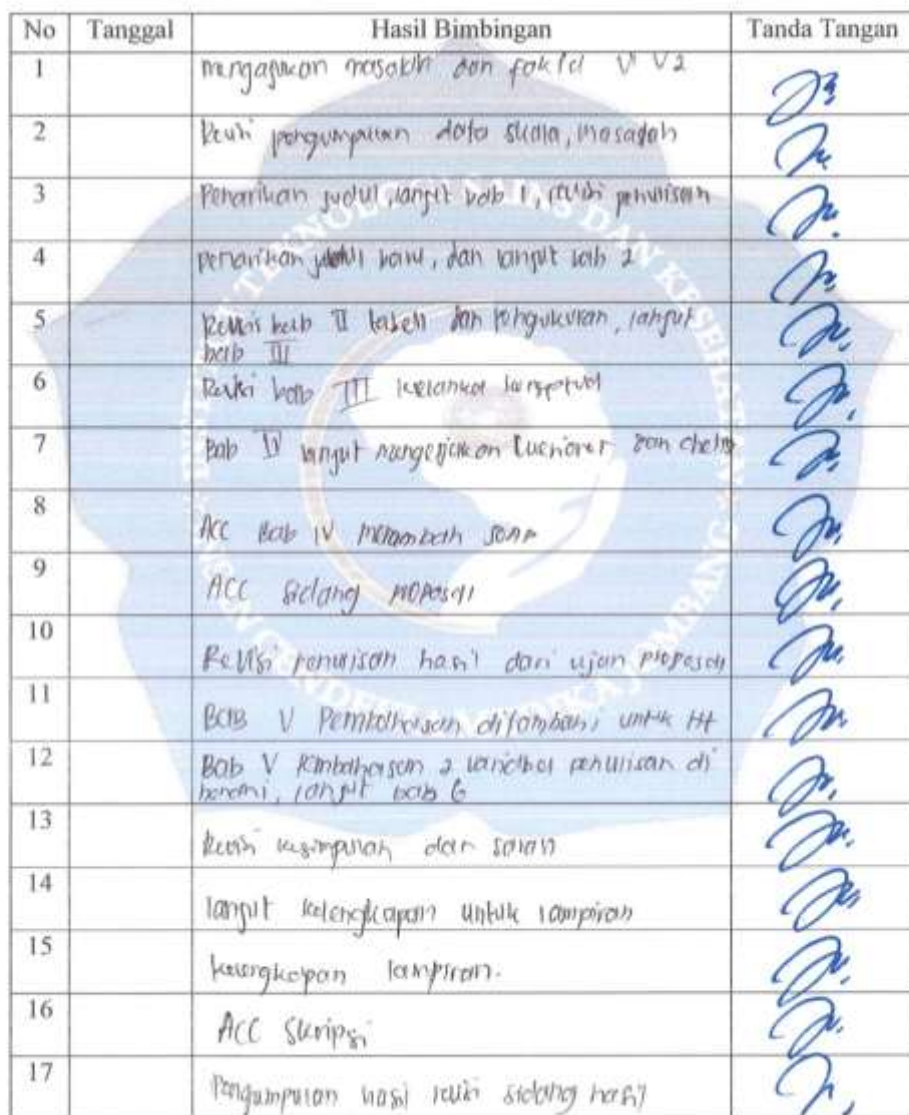 No Tanggal Hasil Bimbingan Tanda Tangan
1 mengajukan masalah dan V1 V2
2 Revisi pengumpulan data skala, masalah
3 Penarikan judul, lanjut bab 1, revisi penulisan
4 penarikan judul baru, dan lanjut bab 2
5 Revisi bab II tabell dan pengukuran, lanjut
bab III
6 Revisi bab III kerangka konseptual
7 Bab IV lanjut mengerjakan dan
8 ACC Bab IV menambah
9 ACC sidang proposal
10 Revisi penulisan hasil dari ujian proposal
11 BAB V Pembahasan ditambahi untuk
12 Bab V Pembahasan 2 variabel penulisan di
benahi, lanjut bab 6
13 Revisi kesimpulan dan saran
14 lanjut kelengkapan untuk lampiran
15 kelengkapan lampiran.
16 ACC Skripsi
17 Pengumpulan hasil revisi sidang hasil